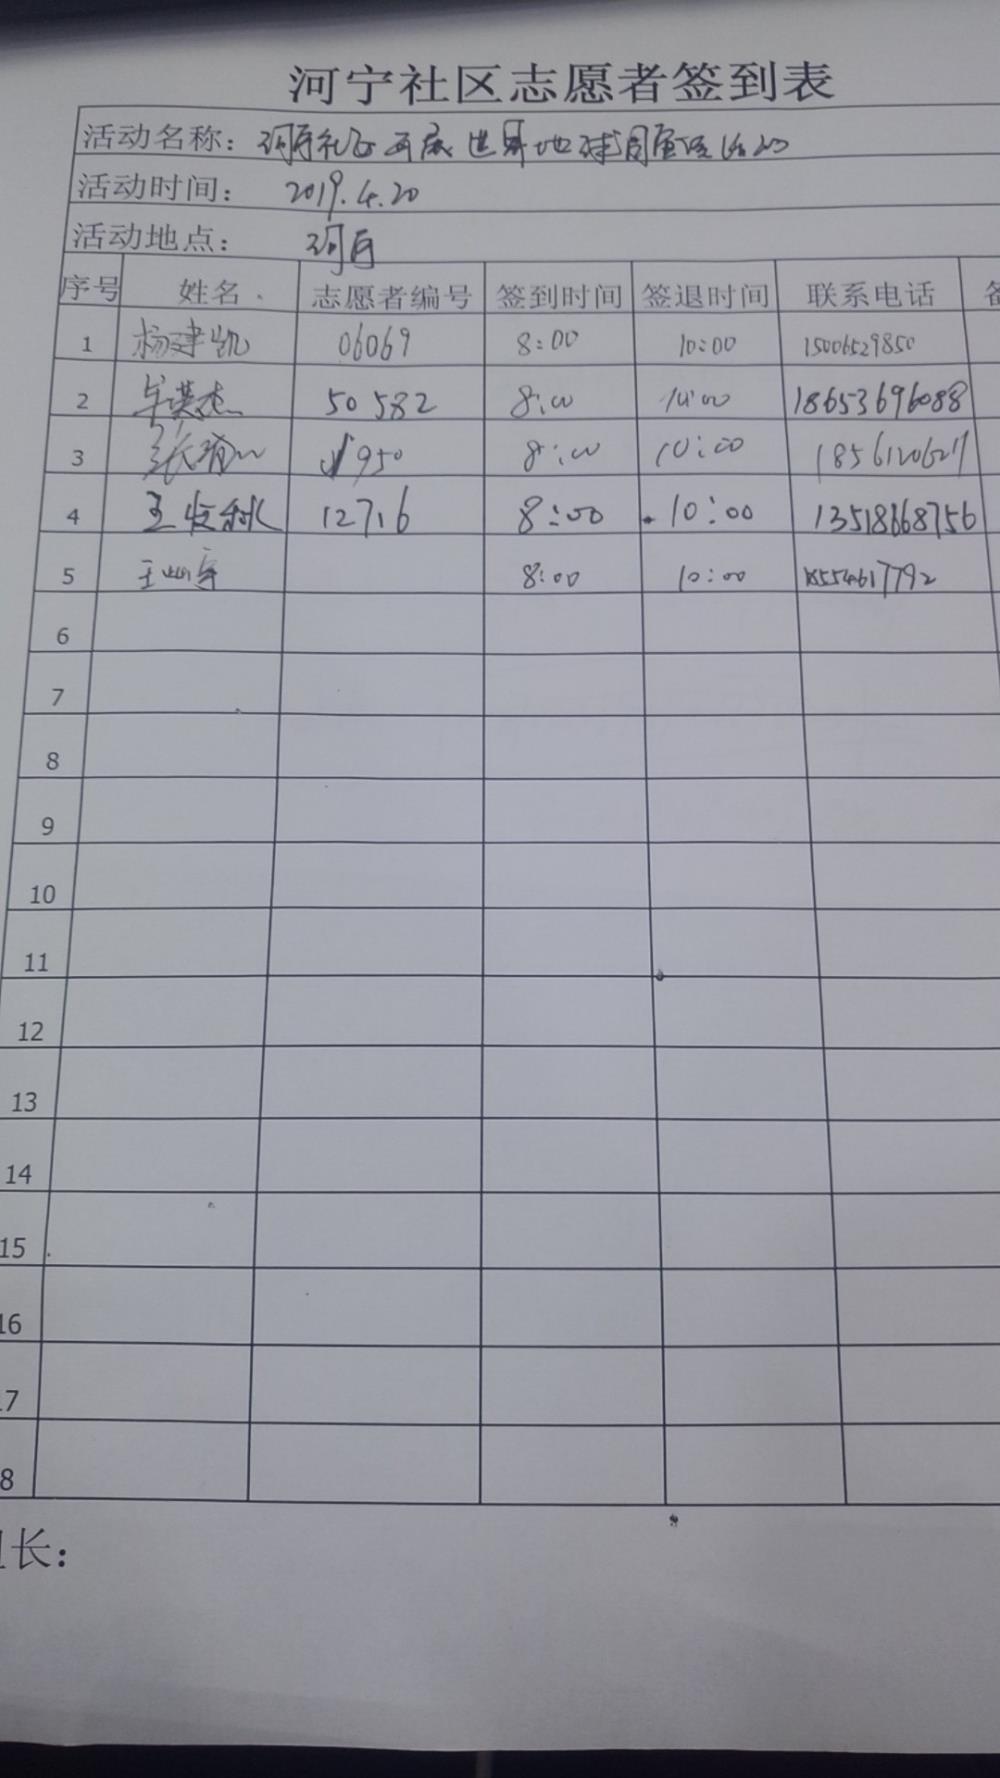 河宁社区志愿者签到表
活动名称：河宁社区开展世界地球周宣传活动
活动时间：2019.4.20
活动地点：河宁
序号 姓名 志愿者编号 签到时间 签退时间 联系电话
1 杨建凯 06069 8:00 10:00 15006529850
2 牟英杰 50582 8:00 10:00 18653696088
3 950 8:00 10:00
4 王 12716 8:00 10:00 13518668756
5 王 8:00 10:00 18554617792
6
7
8
9
10
11
12
13
14
15
16
7
8
长：